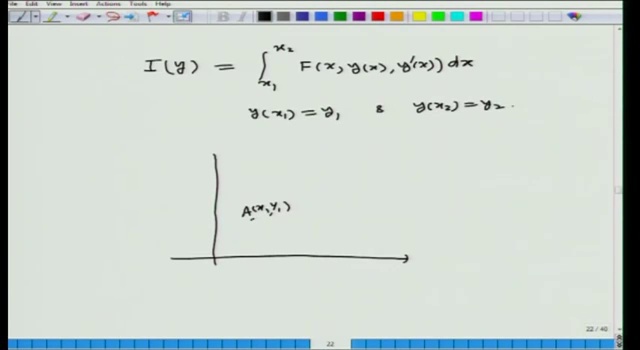 Edit View Insert Actions Tools Help
B
I(y) = ∫_{x₁}^{x₂} F(x, y(x), y'(x)) dx
y(x₁) = y₁ & y(x₂) = y₂.
A(x₁, y₁)
22 / 40
22